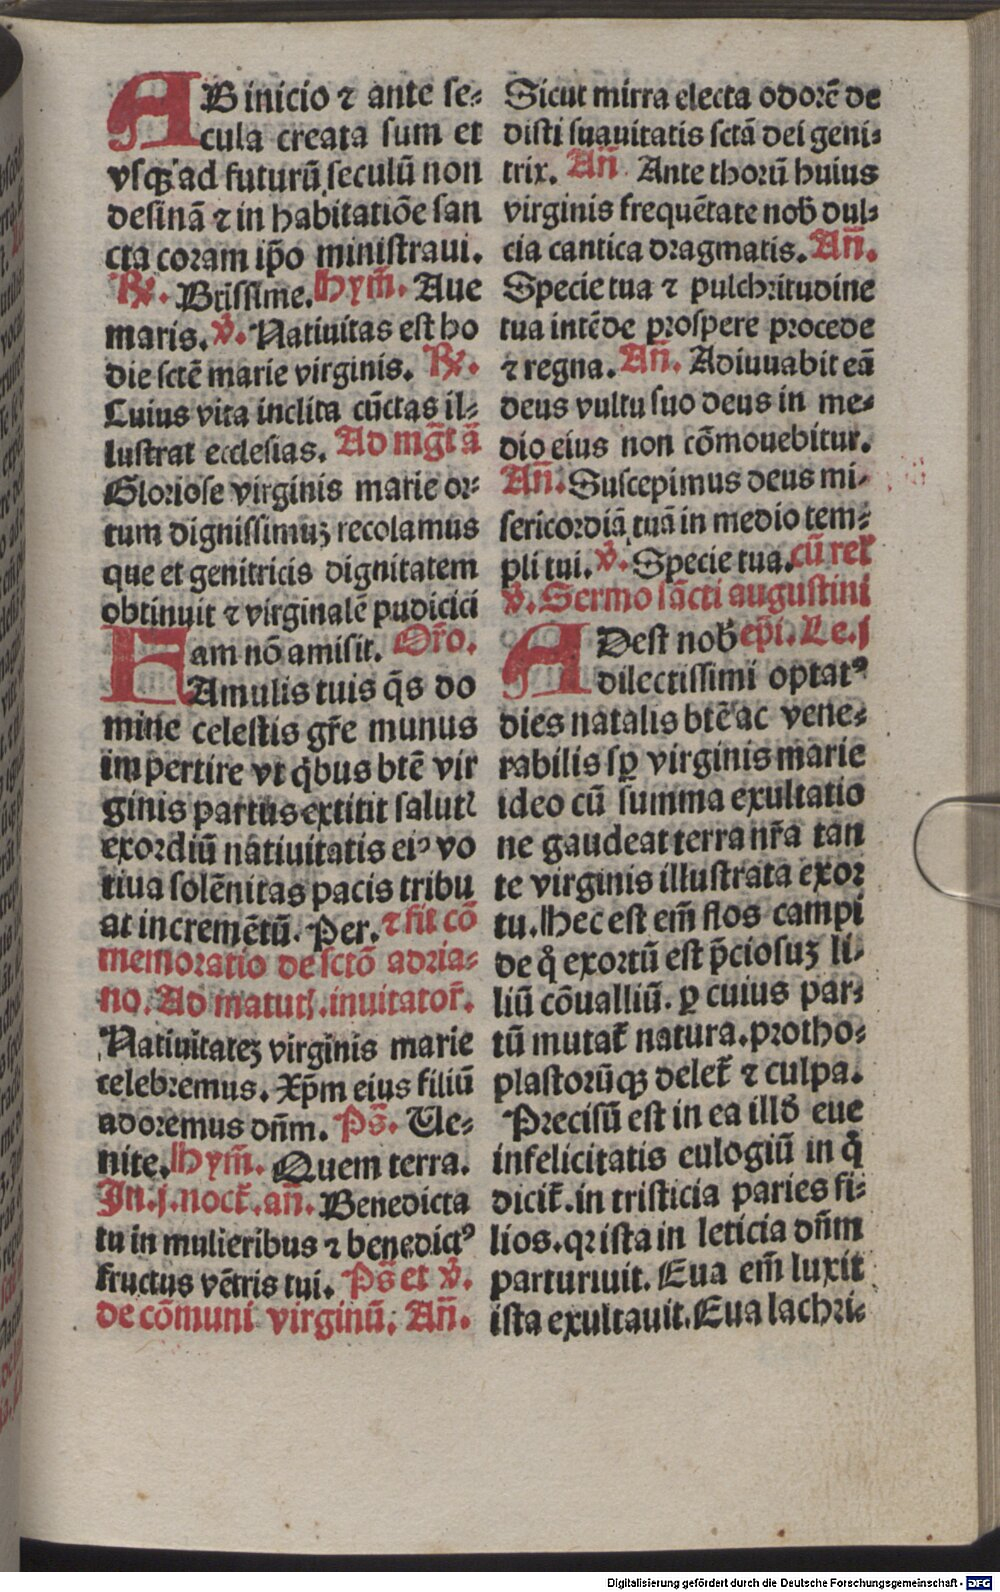 AB inicio ⁊ ante se⸗
cula creata sum et
vsqꝫ ad futurū seculū non
desinā ⁊ in habitatiōe san
cta coram ip̄o ministraui.
R⁊. Btissime. Hym̄. Aue
maris. v̄. Natiuitas est ho
die sctē marie virginis. R⁊.
Cuius vita inclita cūctas il⸗
lustrat ecclesias. Ad mḡt ā
Gloriose virginis marie or⸗
tum dignissimuꝫ recolamus
que et genitricis dignitatem
obtinuit ⁊ virginalē pudicici
am nō amisit. Or̄o.
FAmulis tuis q̄s do
mine celestis gr̄e munus
impertire vt qͥbus btē vir
ginis partus extitit salutꝭ
exordiū natiuitatis eiꝰ vo
tiua solēnitas pacis tribu
at incremētū. Per. ⁊ fit cō
memoratio de sctō adria⸗
no. Ad matutꝭ. inuitator̄.
Natiuitateꝫ virginis marie
celebremus. Xp̄m eius filiū
adoremus dn̄m. Ps̄. Ue⸗
nite. Hym̄. Quem terra.
In .j. noct̄. an̄. Benedicta
tu in mulieribus ⁊ benedictꝰ
fructus vētris tui. Ps̄ et v̄.
de cōmuni virginū. An̄.
Sicut mirra electa odorē de
disti suauitatis sctā dei geni⸗
trix. An̄ Ante thorū huius
virginis frequētate nob̄ dul⸗
cia cantica dragmatis. An̄.
Specie tua ⁊ pulchritudine
tua intēde prospere procede
⁊ regna. An̄. Adiuuabit eā
deus vultu suo deus in me⸗
dio eius non cōmouebitur.
An̄. Suscepimus deus mi⸗
sericordiā tuā in medio tem⸗
pli tui. v̄. Specie tua. cū rel̄
v̄. Sermo sācti augustini
ADest nob̄ ep̄i. Le. j
dilectissimi optatꝰ
dies natalis btē ac vene⸗
rabilis sꝑ virginis marie
ideo cū summa exultatio
ne gaudeat terra nr̄a tan
te virginis illustrata exor
tu. Hec est em̄ flos campi
de qͦ exortū est p̄ciosuꝫ li⸗
liū cōualliū. ꝑ cuius par⸗
tū mutat̄ natura. protho⸗
plastorūqꝫ delet̄ ⁊ culpa.
Precisū est in ea illd̄ eue
infelicitatis eulogiū in qͦ
dicit̄. in tristicia paries fi⸗
lios. qꝛ ista in leticia dn̄m
parturiuit. Eua em̄ luxit
ista exultauit. Eua lachri⸗
Digitalisierung gefördert durch die Deutsche Forschungsgemeinschaft - DFG